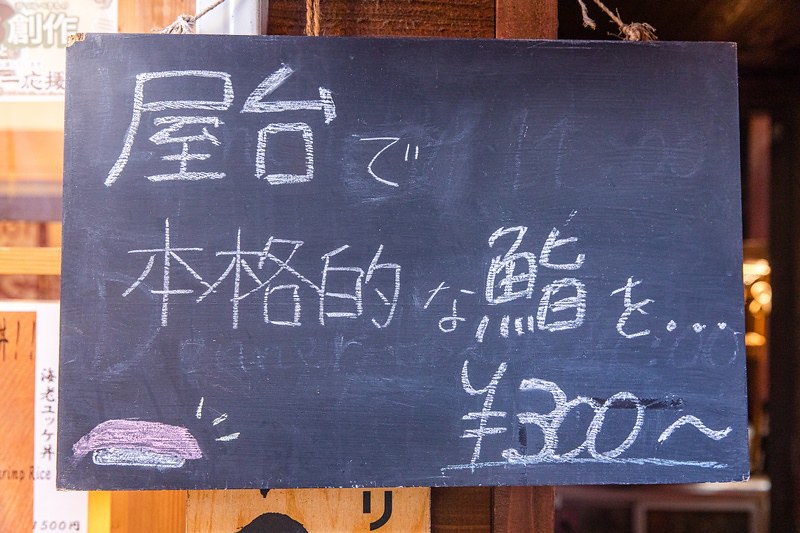 創作
応援
屋台で
本格的な鮨を...
¥300〜
海老ユッケ丼
rimp Rice
1500円
リ